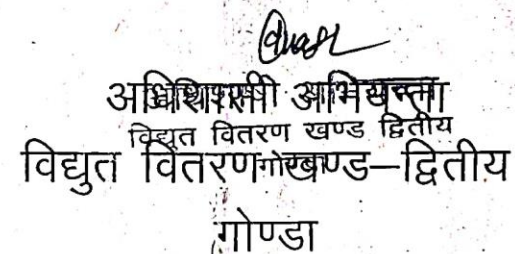 अधिशासी अभियन्ता
विद्युत वितरण खण्ड द्वितीय
विद्युत वितरण खण्ड–द्वितीय
गोण्डा